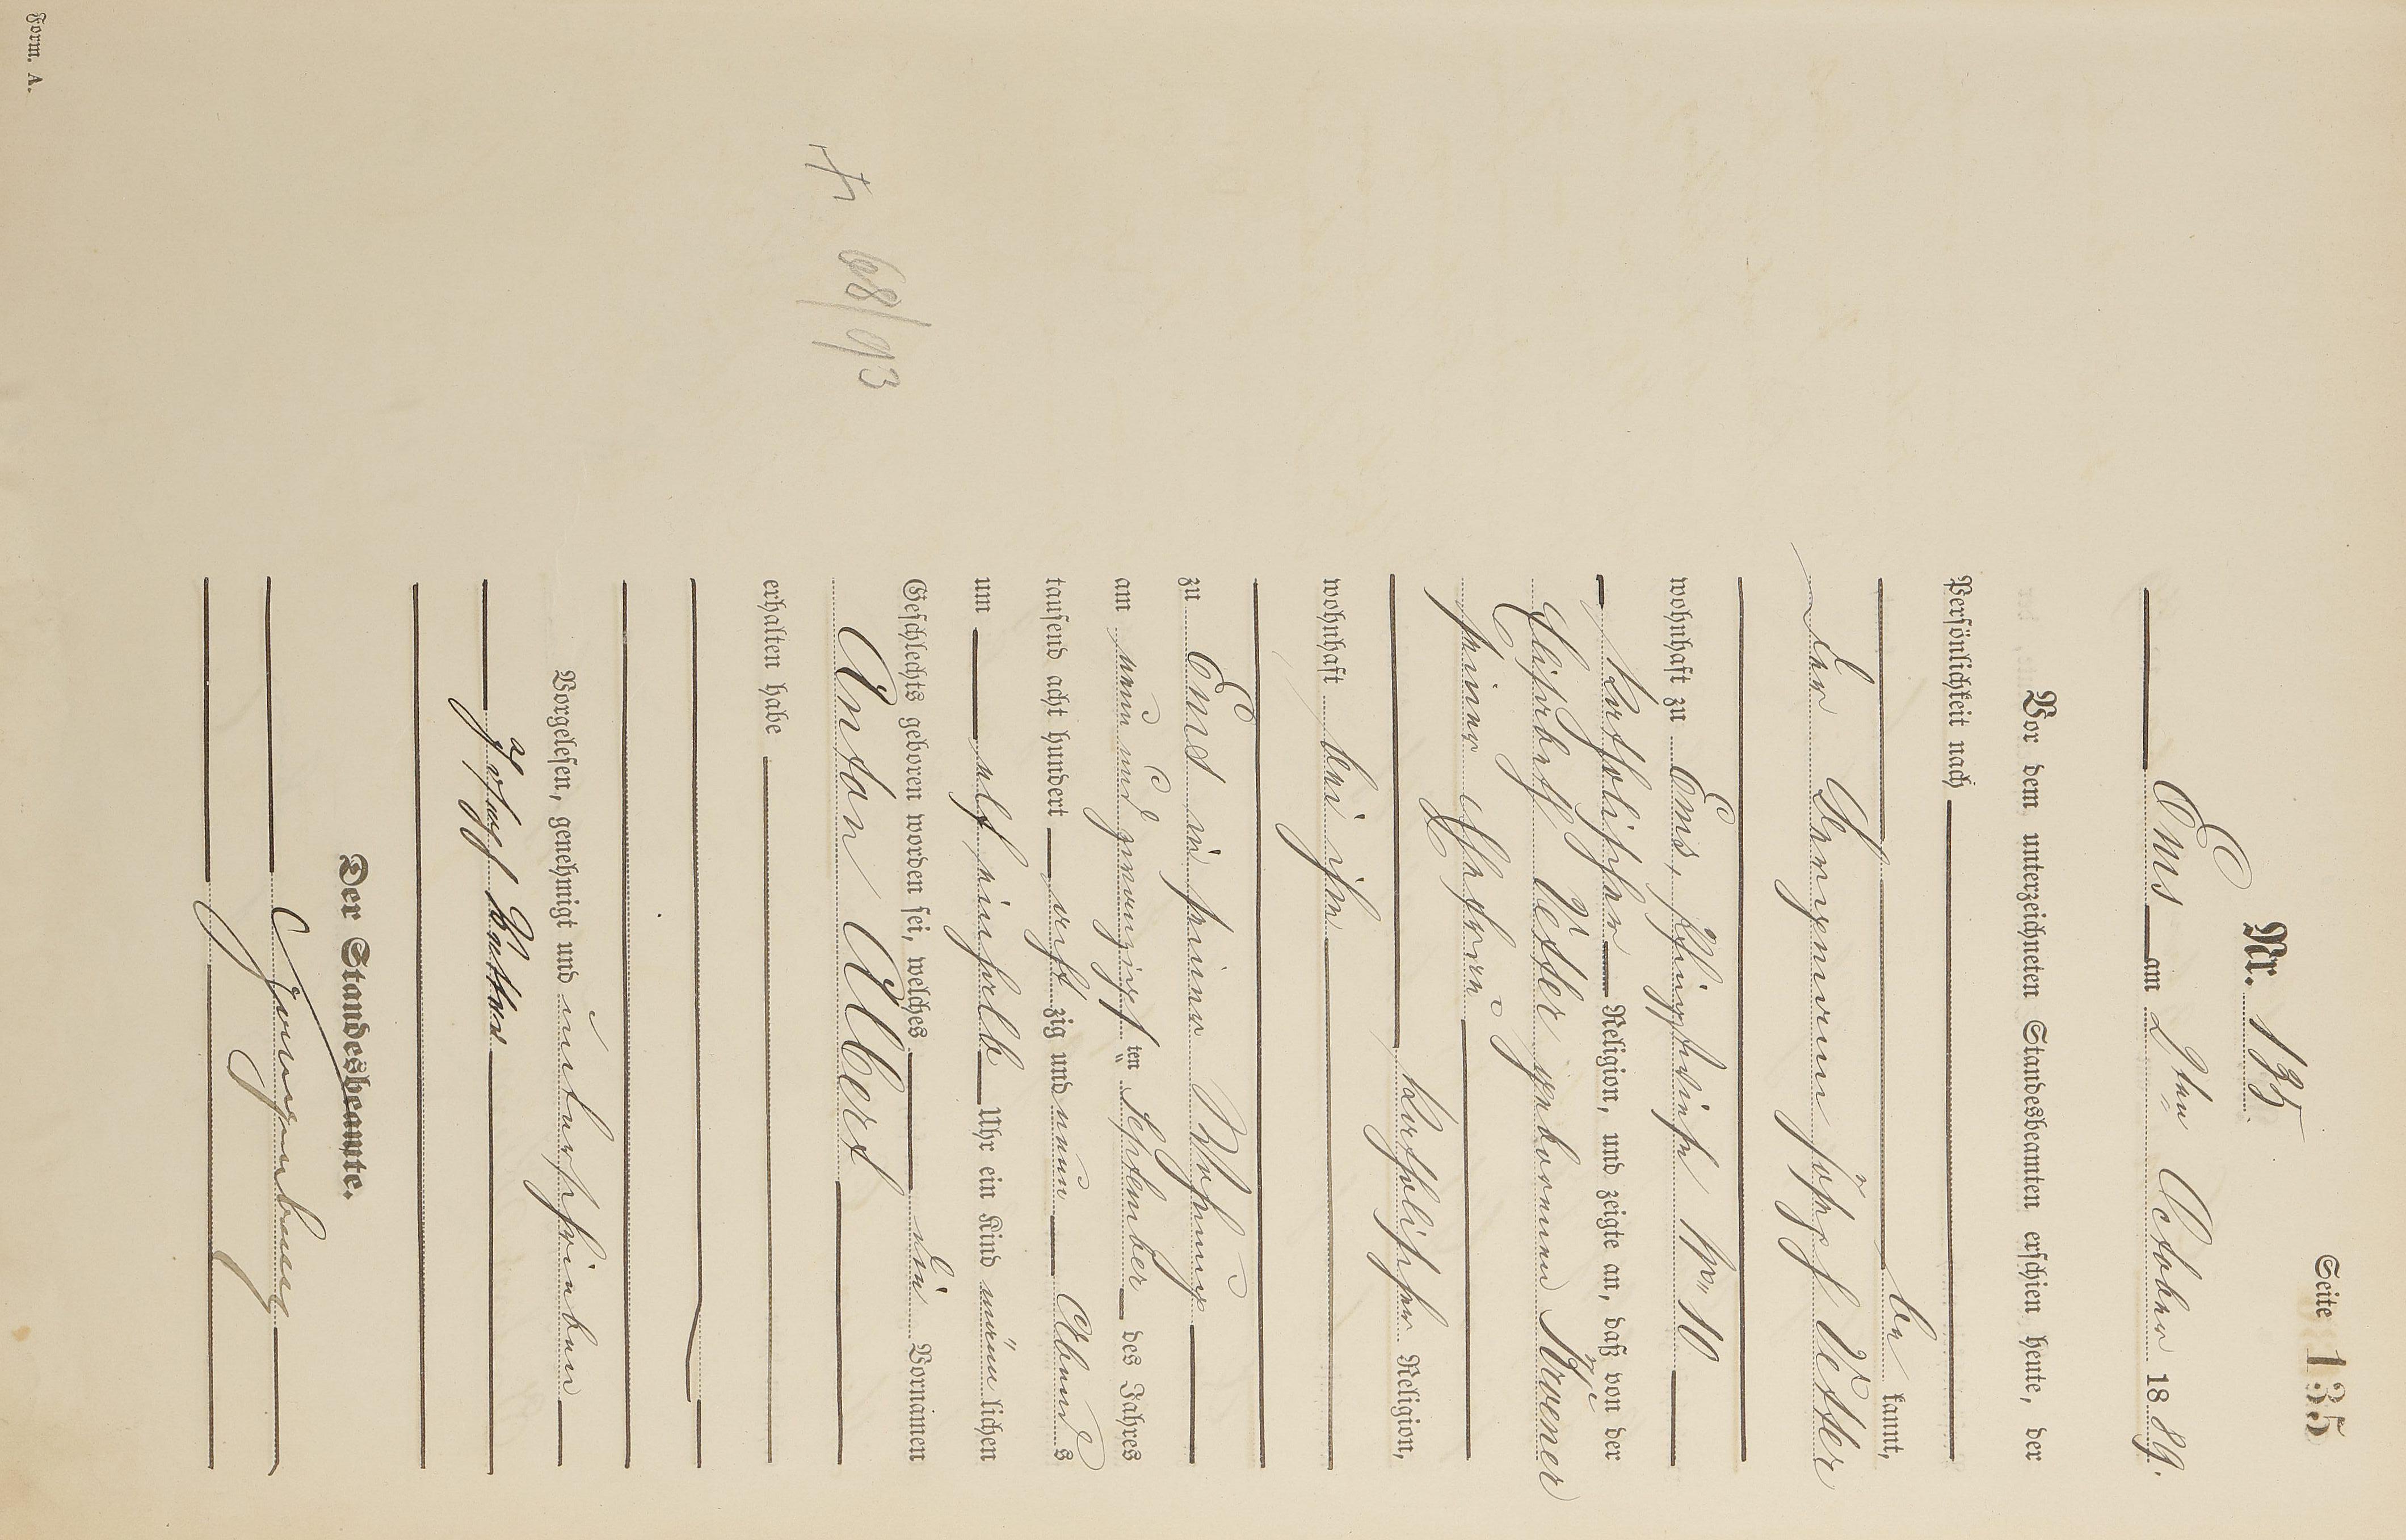 Seite 135
Nr. 135
Ems am 2ten October 1889.
Vor dem unterzeichneten Standesbeamten erschien heute, der
Persönlichkeit nach
be kannt,
der Bergmann Joseph Vetter
wohnhaft zu Ems, Pfingstwiese Nro 10
katholischer Religion, und zeigte an, daß von der
Elisabeth Vetter geborenen
seiner Ehefrau
katholischer Religion,
wohnhaft bei ihm
zu Ems in seiner Wohnung
am neun und zwanzigsten September des Jahres
tausend acht hundert acht zig und neun Abends
um elf einhalb Uhr ein Kind männlichen
Geschlechts geboren worden sei, welches die Vornamen
Anton Albert
erhalten habe
Vorgelesen, genehmigt und unterschrieben
Joseph Vetter
Der Standesbeamte.
† 68/93
Form. A.